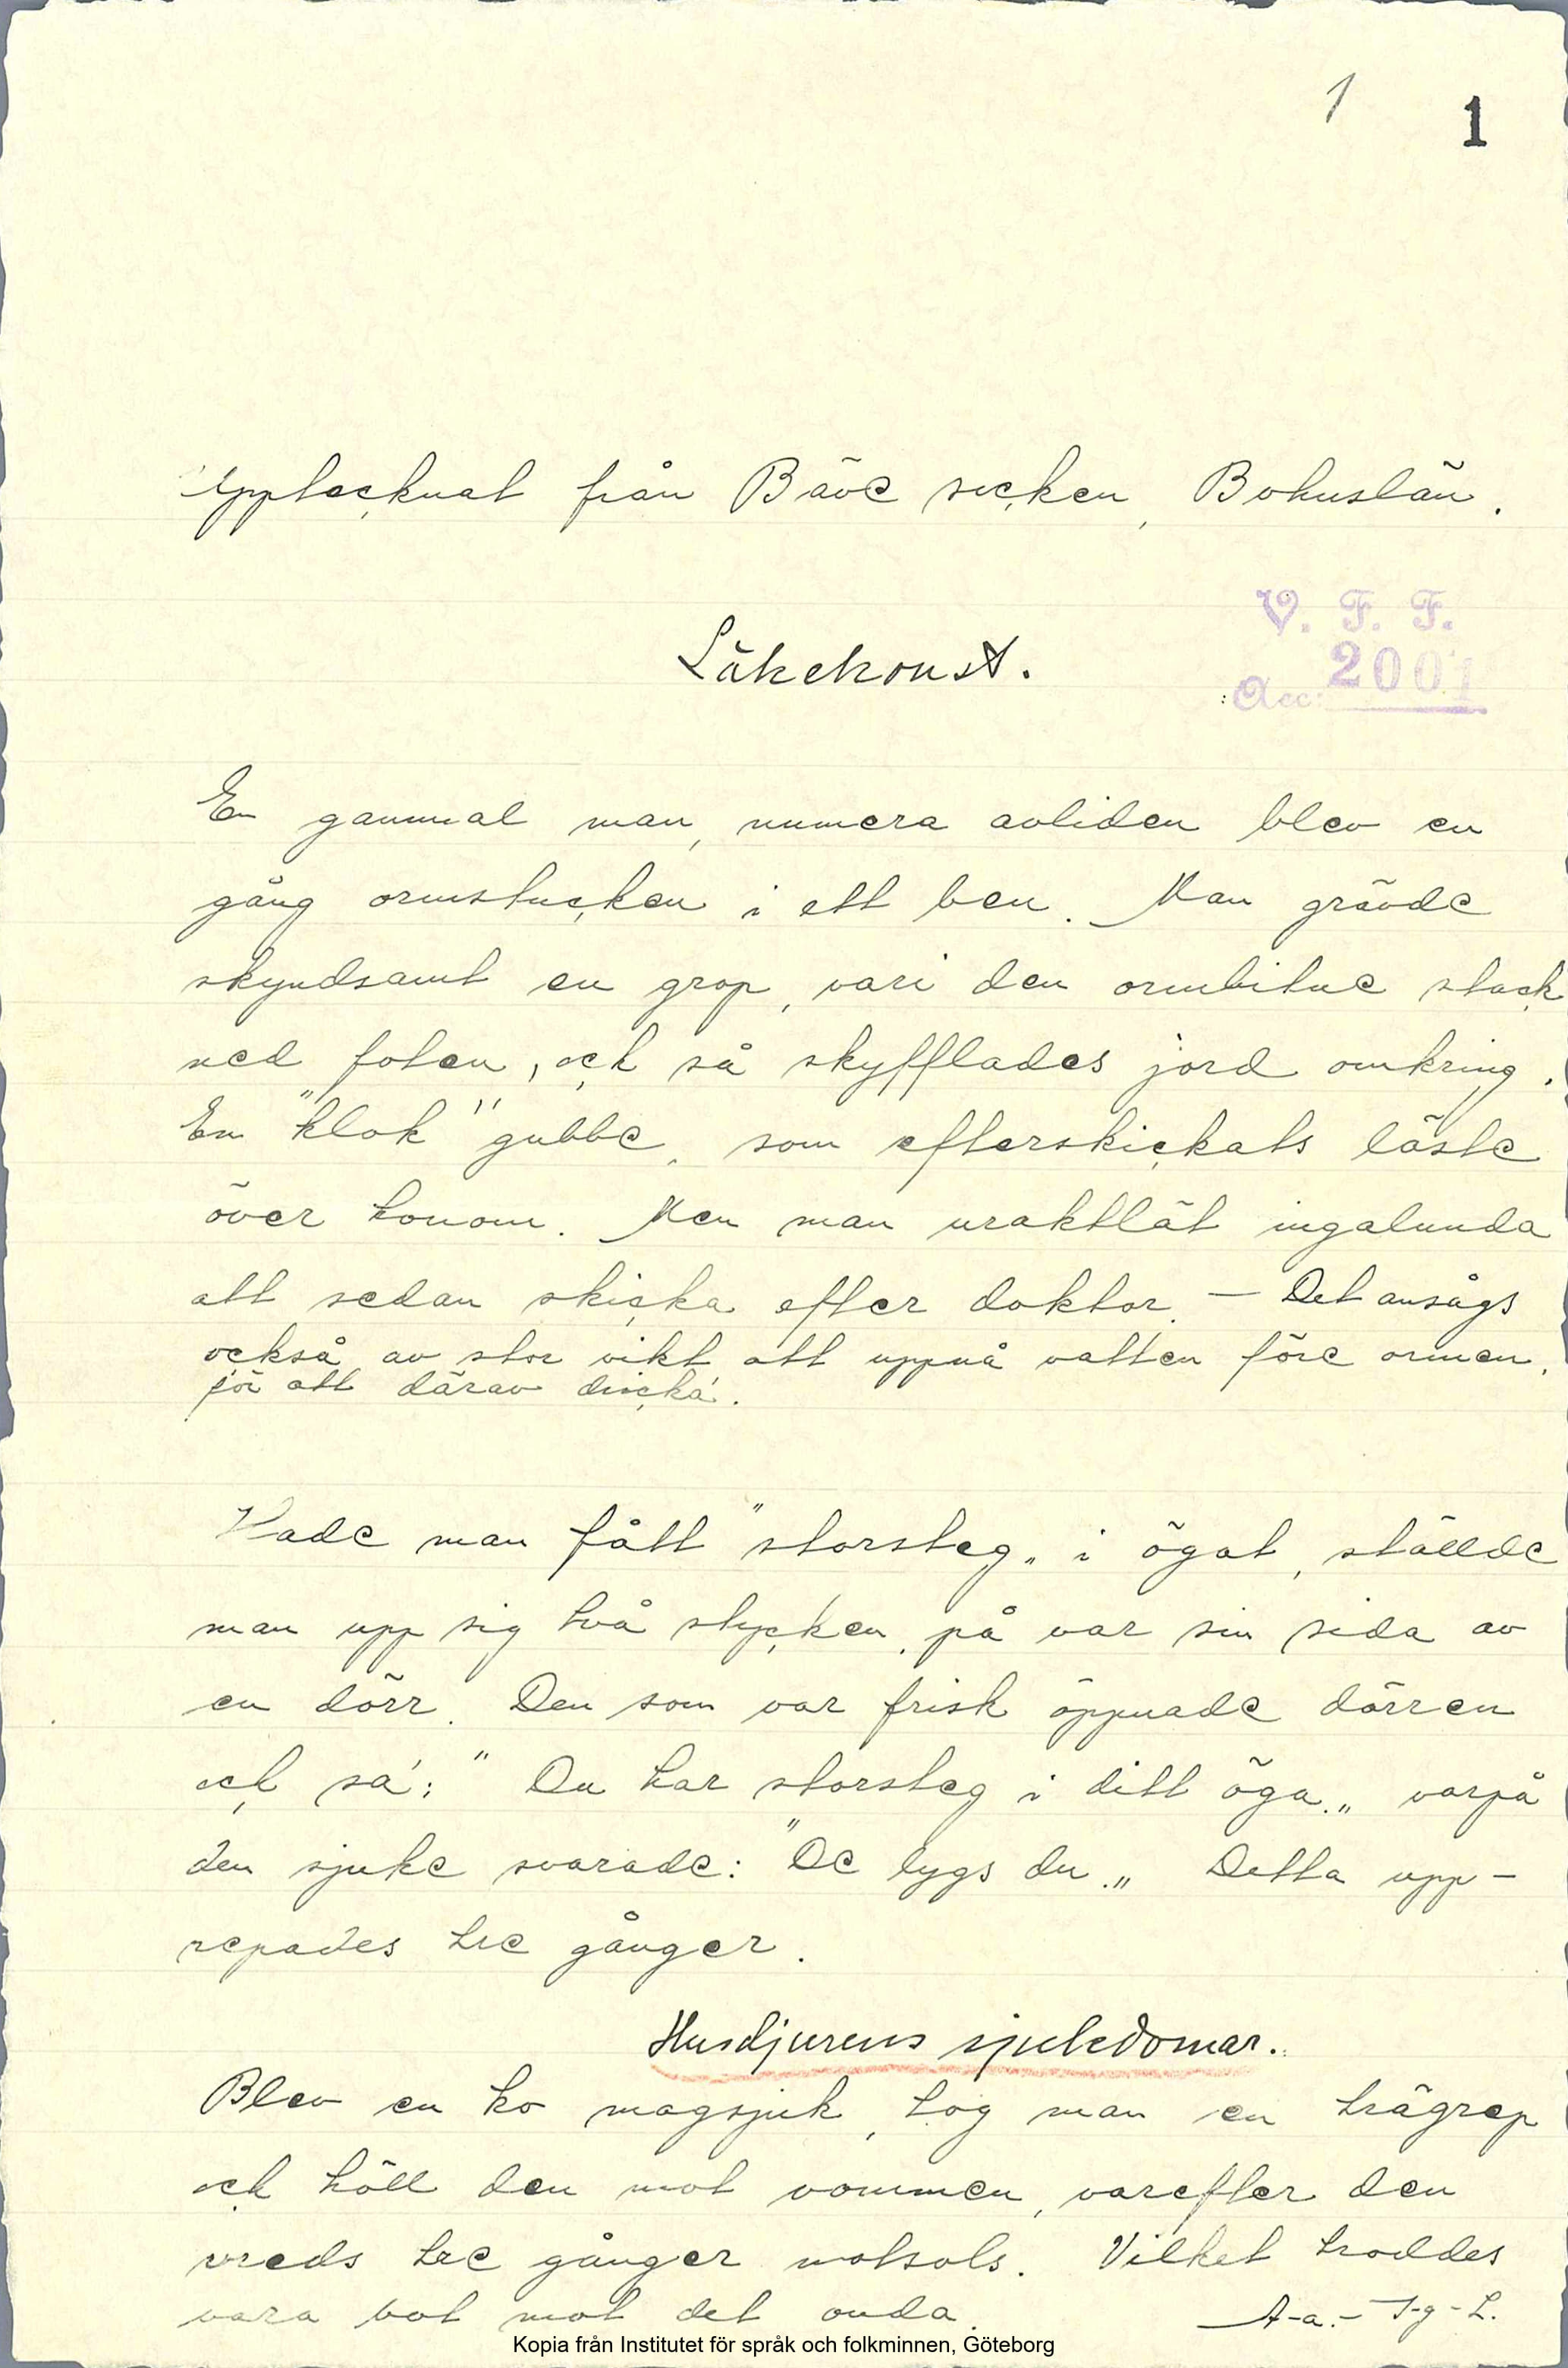 1 1
Upptecknat från Bäve socken, Bohuslän.
Läkekonst.
V. F. F.
Acc: 2001
En gammal man, numera avliden blev en
gång ormstucken i ett ben. Man grävde
skyndsamt en grop, vari den ormbitne stack
ned foten, och så skyfflades jord omkring.
En "klok" gubbe, som efterskickats läste
över honom. Men man uraktlät ingalunda
att sedan skicka efter doktor. — Det ansågs
också av stor vikt att uppnå vatten före ormen,
för att därav dricka.
Hade man fått "storsteg„ i ögat, ställde
man upp sig två stycken, på var sin sida av
en dörr. Den som var frisk öppnade dörren
och sa': "Du har storsteg i ditt öga.„ varpå
den sjuke svarade: "De lygs du.„ Detta upp-
repades tre gånger.
Husdjurens sjukdomar.
Blev en ko magsjuk, tog man en trägrep
och höll den mot vommen, varefter den
vreds tre gånger motsols. Vilket troddes
vara bot mot det onda. A-a.- I-g-L.
Kopia från Institutet för språk och folkminnen, Göteborg